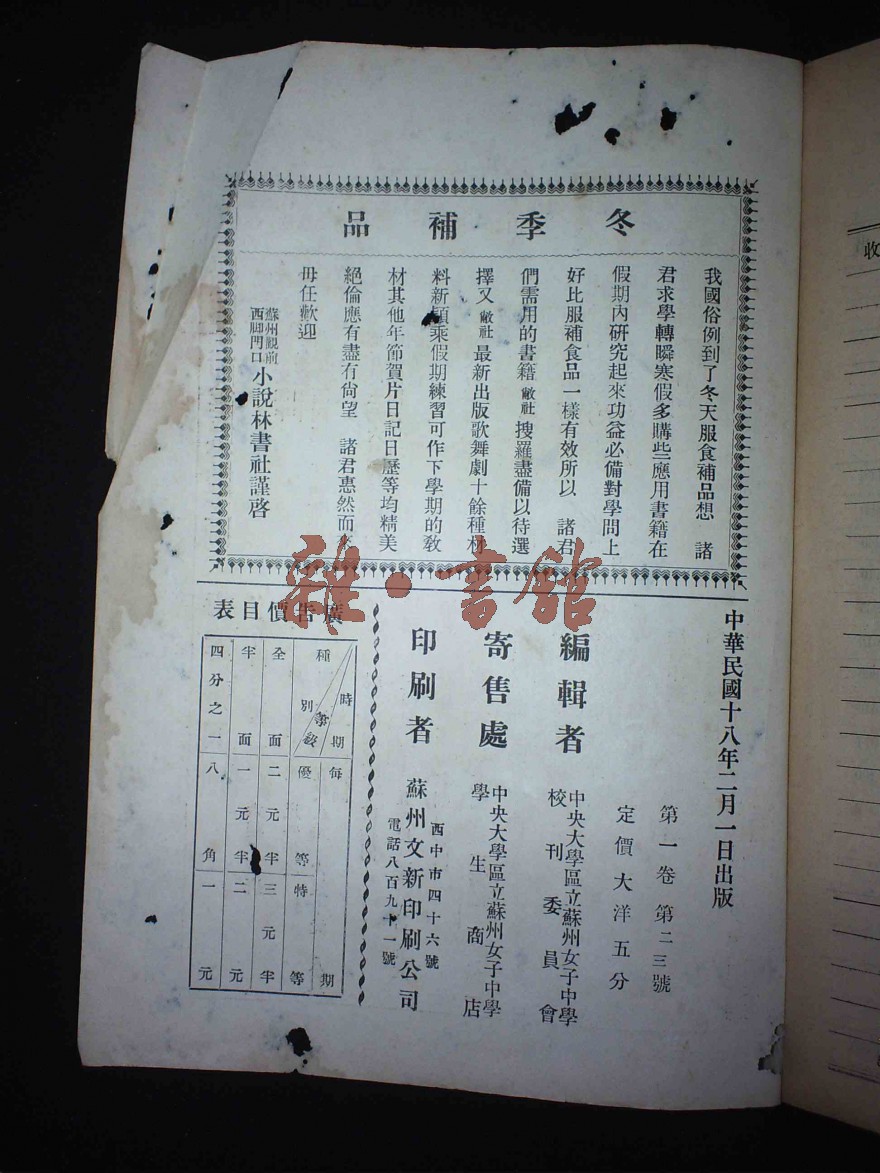 冬季補品
我國俗例到了冬天服食補品想　諸
君求學轉瞬寒假多購些應用書籍在
假期內研究起來功益必備對學問上
好比服補食品一樣有效所以　諸君
們需用的書籍敝社搜羅盡備以待選
擇又敝社最新出版歌舞劇十餘種材
料新穎乘假期練習可作下學期的教
材其他年節賀片日記日歷等均精美
絕倫應有盡有尙望　諸君惠然而
毋任歡迎
蘇州觀前
西脚門口
小說林書社謹啓
中華民國十八年二月一日出版
第一卷第二三號
定價大洋五分
編輯者
中央大學區立蘇州女子中學
校刊委員會
寄售處
中央大學區立蘇州女子中學
學生商店
印刷者
西中市四十六號
蘇州文新印刷公司
電話八百九十一號
廣告價目表
時期
等級
種別
每期
優等
特等
全面
二元半
三元半
半面
一元半
二元
四分之一
八角
一元
收
雜·書館